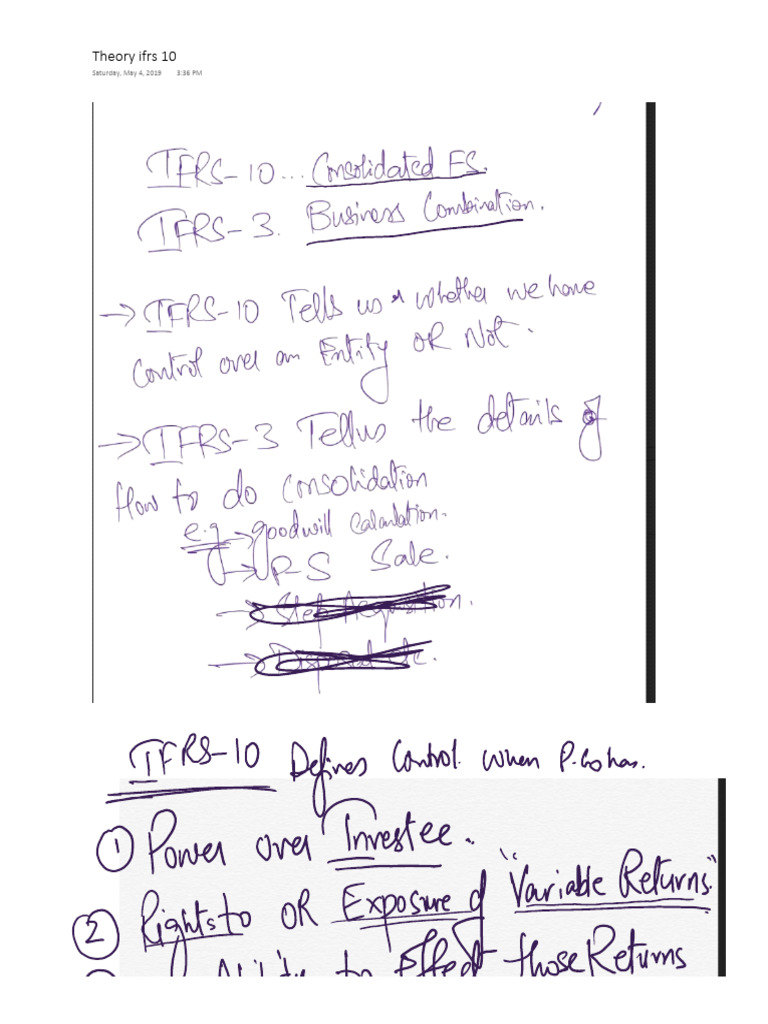 Theory ifrs 10
Saturday, May 4, 2019 3:36 PM
IFRS-10... Consolidated FS.
IFRS-3. Business Combination.
→ IFRS-10 Tells us whether we have
Control over an Entity OR Not.
→ IFRS-3 Tell us the details of
How to do Consolidation
e.g → goodwill Calculation.
→ P-S Sale.
→ Step Acquisition.
IFRS-10 Defines Control when P.Co has.
① Power over Investee.
② Rights to OR Exposure of "Variable Returns."
Ability to Effect those Returns